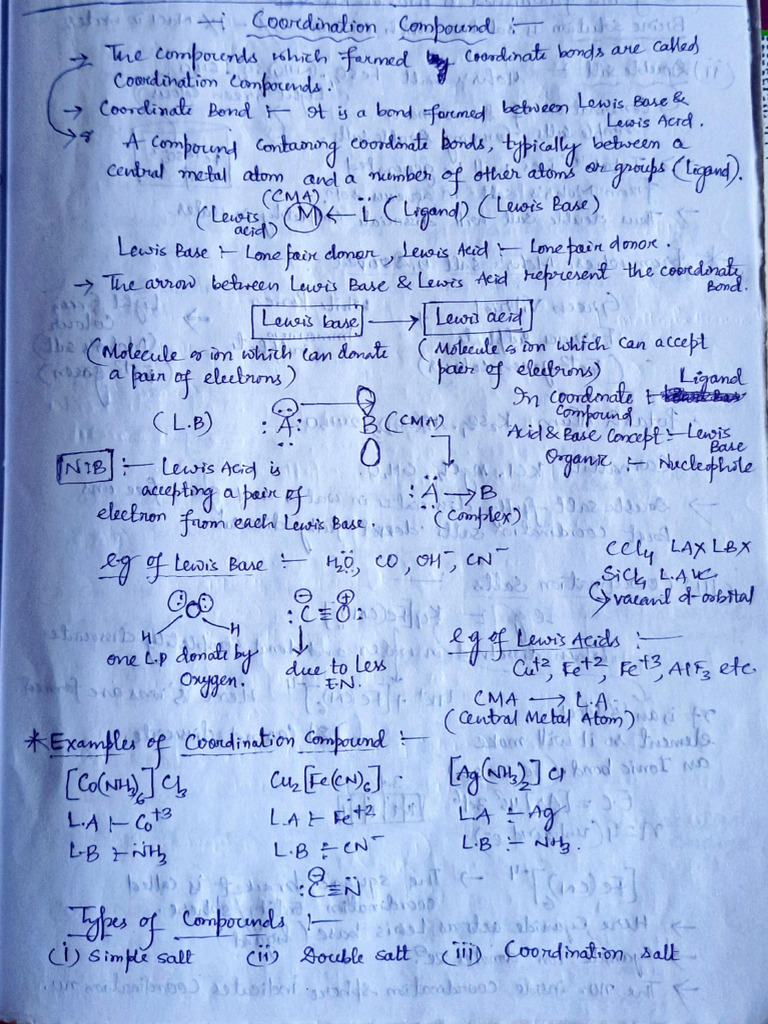 *: Coordination Compound :-
→ The compounds which formed by coordinate bonds are called
Coordination Compounds.
→ Coordinate Bond :- It is a bond formed between Lewis Base &
Lewis Acid.
A compound containing coordinate bonds, typically between a
central metal atom and a number of other atoms or groups (Ligand).
(CMA)
(Lewis acid) M ← L̈ (Ligand) (Lewis Base)
Lewis Base :- Lone pair donor, Lewis Acid :- Lone pair donor.
→ The arrow between Lewis Base & Lewis Acid represent the coordinate
Bond.
Lewis base → Lewis acid
(Molecule or ion which can donate
a pair of electrons)
(Molecule or ion which can accept
pair of electrons)
In coordinate compound :- Ligand
Acid & Base Concept :- Lewis Base
Organic :- Nucleophile
(L.B) :Ä: B (CMA)
:Ä → B
(Complex)
N.B :- Lewis Acid is
accepting a pair of
electron from each Lewis Base.
e.g of Lewis Base :- H₂Ö, CO, OH⁻, CN⁻
CCl₄ LAX LBX
SiCl₄ L.A ✓
↳ vacant d-orbital
H H
one L.P donate by
Oxygen.
⊖ ⊕
:C≡O:
↓
due to less
E.N.
e.g of Lewis Acids :-
Cu⁺², Fe⁺², Fe⁺³, AlF₃ etc.
CMA → L.A
(Central Metal Atom)
* Examples of Coordination Compound :-
[Co(NH₃)₆] Cl₃ Cu₂[Fe(CN)₆] . [Ag(NH₃)₂] Cl
L.A :- Co⁺³ L.A :- Fe⁺² L.A :- Ag
L.B :- N̈H₃ L.B :- CN⁻ L.B :- N̈H₃.
⊖
:C≡N̈
Types of Compounds :-
(i) Simple salt (ii) Double salt (iii) Coordination salt